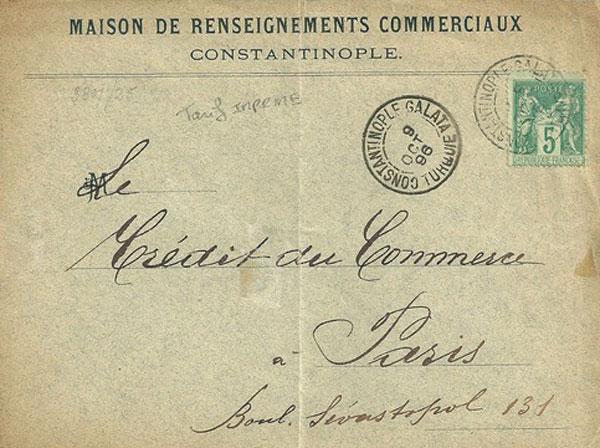 MAISON DE RENSEIGNEMENTS COMMERCIAUX
CONSTANTINOPLE.
Tarif IMPRIMÉ
CONSTANTINOPLE GALATA
9
OCT
96
TURQUIE
CONSTANTINOPLE-GALATA
POSTE
5
REPUBLIQUE FRANCAISE
Le
Crédit du Commerce
à Paris
Boul. Sévastopol 131